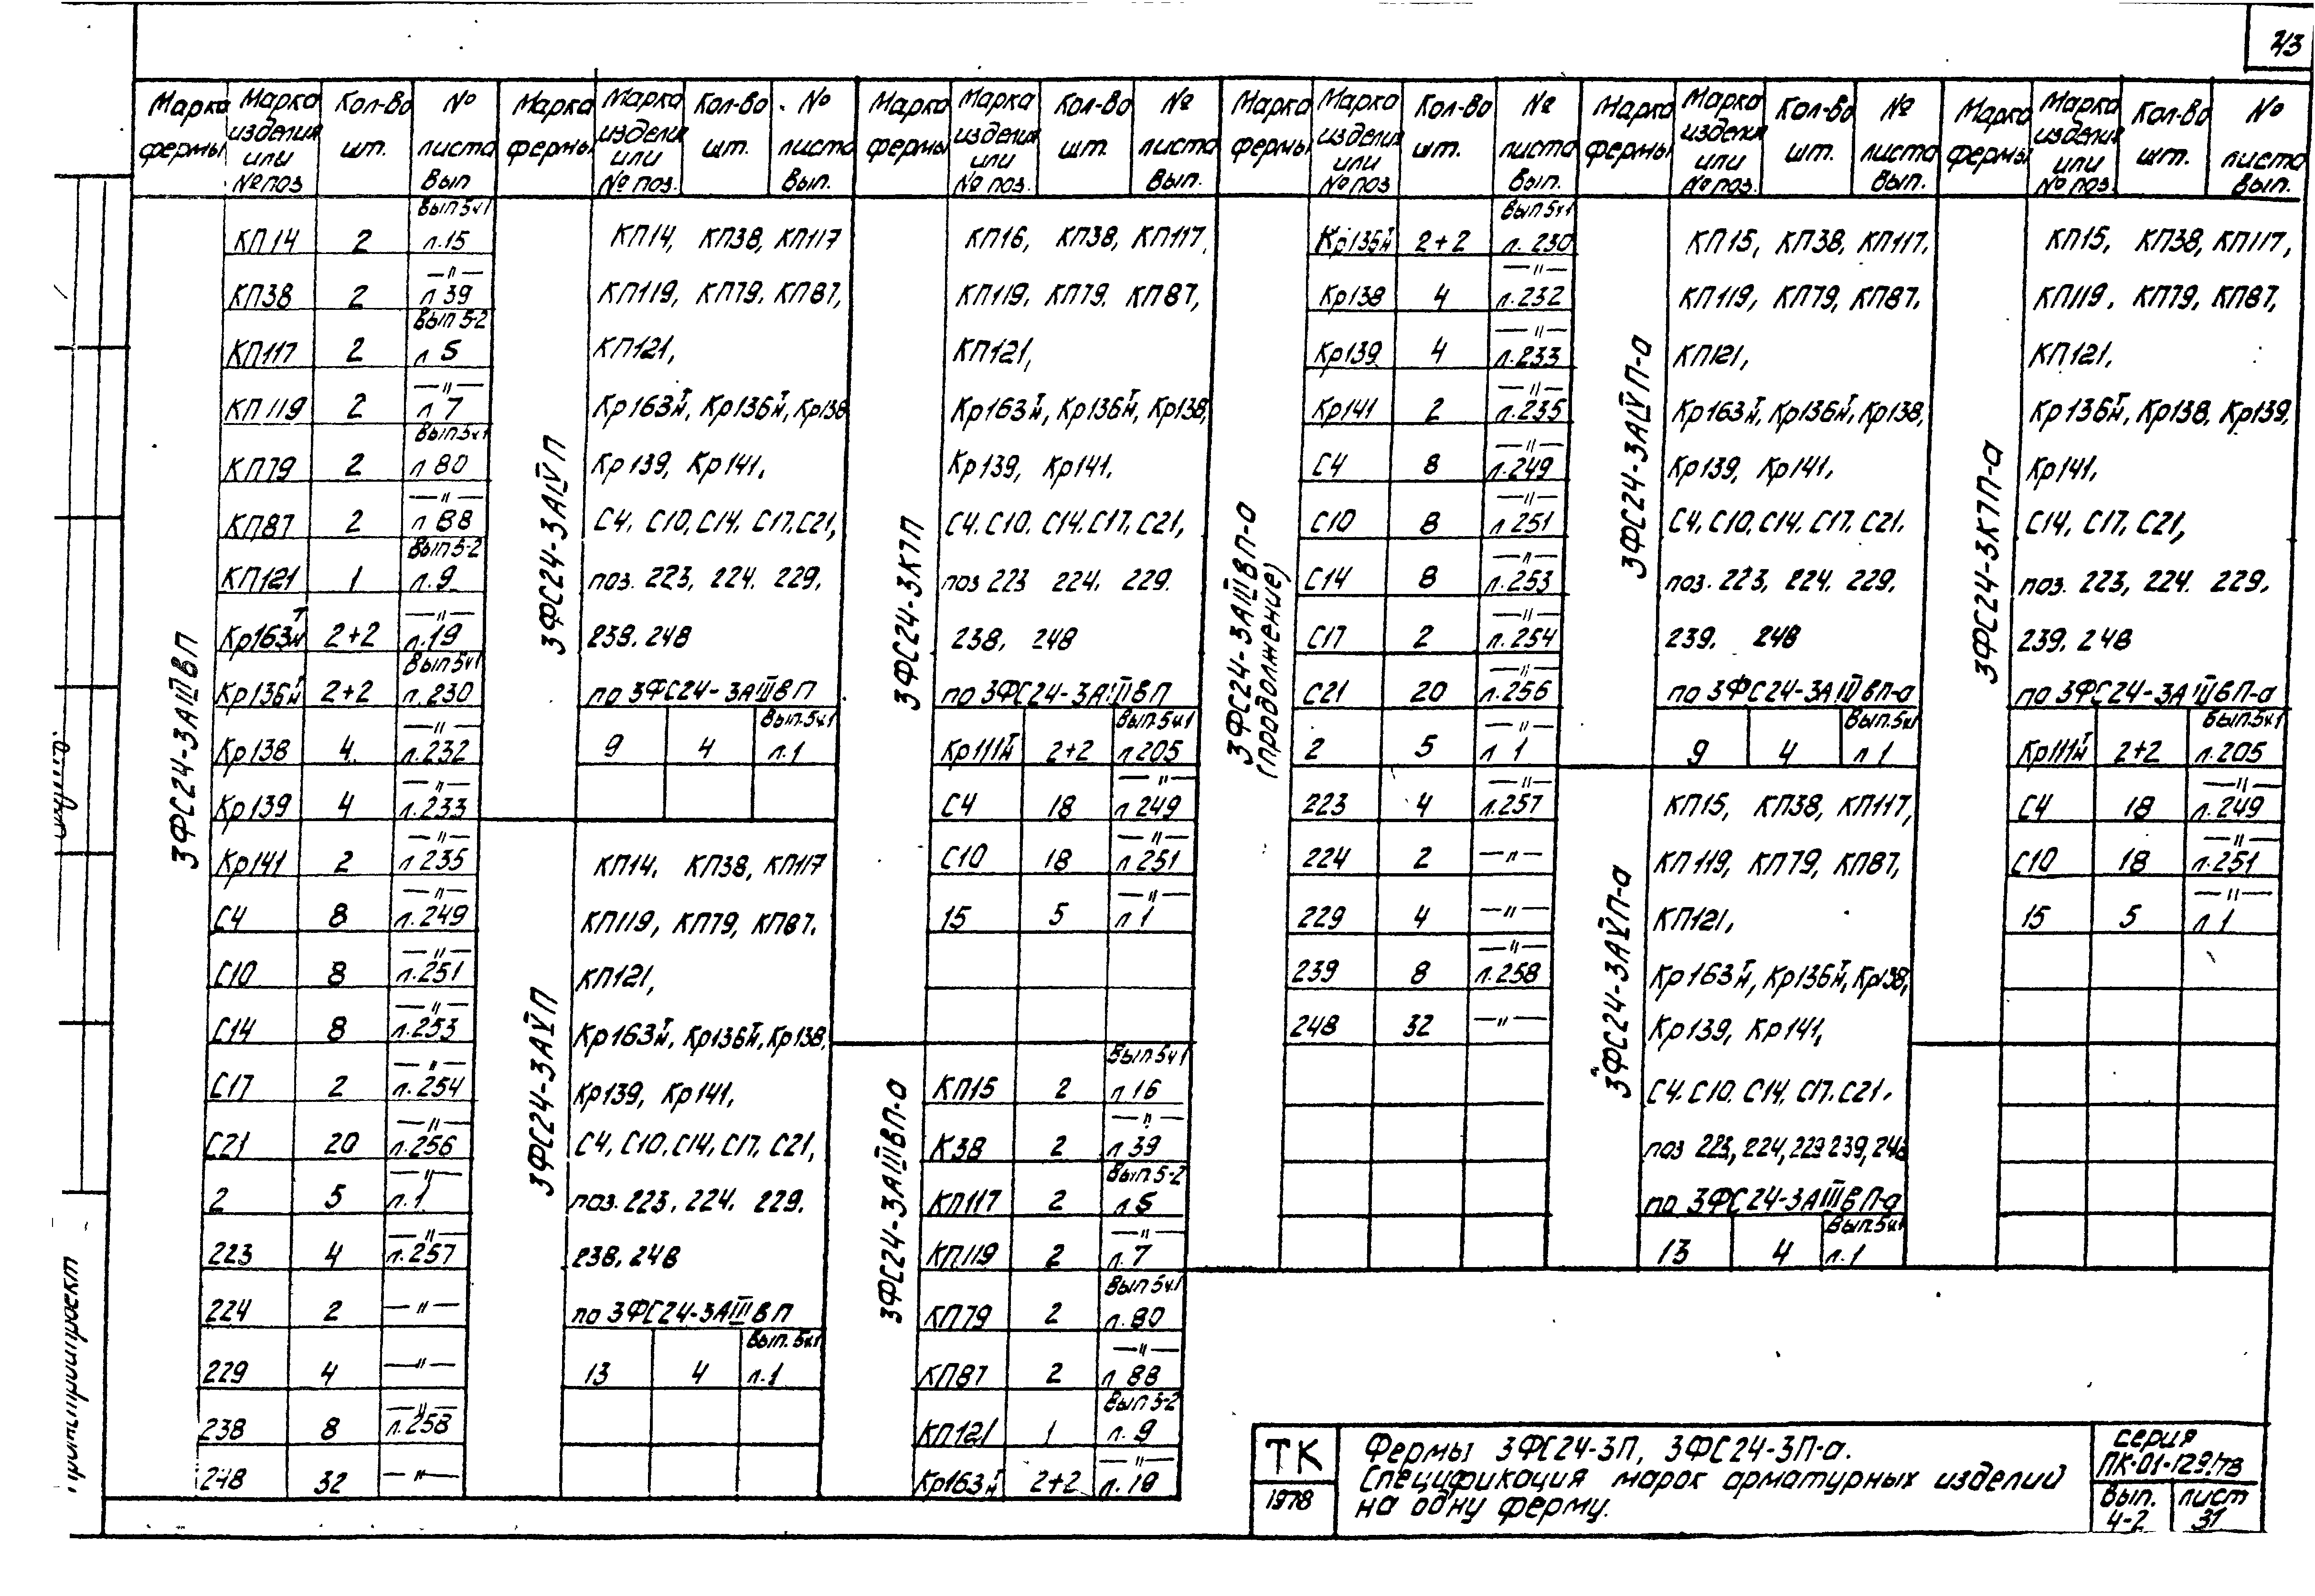 43
Марка фермы | Марка изделия или № поз | Кол-во шт. | № листа Вып
3ФС24-3АIIIВП
КП14 2 Вып 5ч1 л.15
КП38 2 —"— л 39
КП117 2 Вып 5-2 л 5
КП119 2 —"— л 7
КП79 2 Вып.5ч1 л 80
КП87 2 —"— л 88
КП121 1 Вып 5-2 л.9
Кр163тн 2+2 —"— л.19
Кр136тн 2+2 Вып 5ч1 л.230
Кр138 4 —"— л.232
Кр139 4 —"— л.233
Кр141 2 —"— л 235
С4 8 —"— л.249
С10 8 —"— л.251
С14 8 —"— л.253
С17 2 —"— л.254
С21 20 —"— л.256
2 5 —"— л.1
223 4 —"— л.257
224 2 —"—
229 4 —"—
238 8 —"— л.258
248 32 —"—
Марка фермы | Марка изделия или № поз. | Кол-во шт. | № листа Вып.
3ФС24-3АIVП
КП14, КП38, КП117
КП119, КП79. КП87,
КП121,
Кр163тн, Кр136тн, Кр138
Кр139, Кр141.
С4. С10, С14. С17. С21,
поз. 223, 224. 229.
238. 248
по 3ФС24-3АIIIВП
9 4 Вып.5ч1 л.1
3ФС24-3АVП
КП14. КП38, КП117
КП119, КП79, КП87.
КП121,
Кр163тн, Кр136тн, Кр138,
Кр139, Кр141,
С4, С10, С14, С17, С21,
поз. 223, 224. 229.
238. 248
по 3ФС24-3АIIIВП
13 4 Вып. 5ч1 л.1
Марка фермы | Марка изделия или № поз. | Кол-во шт. | № листа Вып.
3ФС24-3К7П
КП16, КП38, КП117,
КП119. КП79. КП87,
КП121,
Кр163тн, Кр136тн, Кр138,
Кр139, Кр141.
С4. С10. С14. С17. С21,
поз 223 224. 229.
238, 248
по 3ФС24-3АIIIВП
Кр111тн 2+2 Вып.5ч1 л.205
С4 18 —"— л 249
С10 18 —"— л 251
15 5 —"— л 1
3ФС24-3АIIIВП-а
КП15 2 Вып.5ч1 л 16
К38 2 —"— л 39
КП117 2 Вып 5-2 л 5
КП119 2 —"— л.7
КП79 2 Вып 5ч.1 л.80
КП87 2 —"— л 88
КП121 1 Вып 5-2 л. 9
Кр163тн 2+2 —"— л. 19
Марка фермы | Марка изделия или № поз | Кол-во шт. | № листа Вып.
3ФС24-3АIIIВП-а
(продолжение)
Кр136тн 2+2 Вып 5ч1 л. 230
Кр138 4 —"— л.232
Кр139 4 —"— л.233
Кр141 2 —"— л.235
С4 8 —"— л.249
С10 8 —"— л.251
С14 8 —"— л.253
С17 2 —"— л.254
С21 20 —"— л.256
2 5 —"— л 1
223 4 —"— л.257
224 2 —"—
229 4 —"—
239 8 —"— л.258
248 32 —"—
Марка фермы | Марка изделия или № поз. | Кол-во шт. | № листа Вып.
3ФС24-3АIVП-а
КП15, КП38, КП117.
КП119, КП79, КП87.
КП121,
Кр163тн, Кр136тн, Кр138,
Кр139, Кр141,
С4. С10, С14. С17. С21.
поз. 223, 224. 229.
239. 248
по 3ФС24-3АIIIВП-а
9 4 Вып.5ч1 л 1
3ФС24-3АVП-а
КП15, КП38, КП117,
КП119, КП79, КП87,
КП121,
Кр163тн, Кр136тн, Кр138,
Кр139, Кр141,
С4. С10. С14. С17. С21.
поз 223, 224, 229 239, 248
по 3ФС24-3АIIIВП-а
13 4 Вып.5ч1 л.1
Марка фермы | Марка изделия или № поз. | Кол-во шт. | № листа Вып.
3ФС24-3К7П-а
КП15, КП38, КП117,
КП119, КП79, КП87,
КП121.
Кр136тн, Кр138, Кр139,
Кр141.
С14, С17. С21,
поз. 223, 224. 229.
239. 248
по 3ФС24-3АIIIВП-а
Кр111тн 2+2 Вып.5ч1 л.205
С4 18 —"— л.249
С10 18 —"— л.251
15 5 —"— л 1
ТК
1978
Фермы 3ФС24-3П, 3ФС24-3П-а.
Спецификация марок арматурных изделий
на одну ферму.
серия
ПК-01-129/78
Вып. 4-2
лист 31